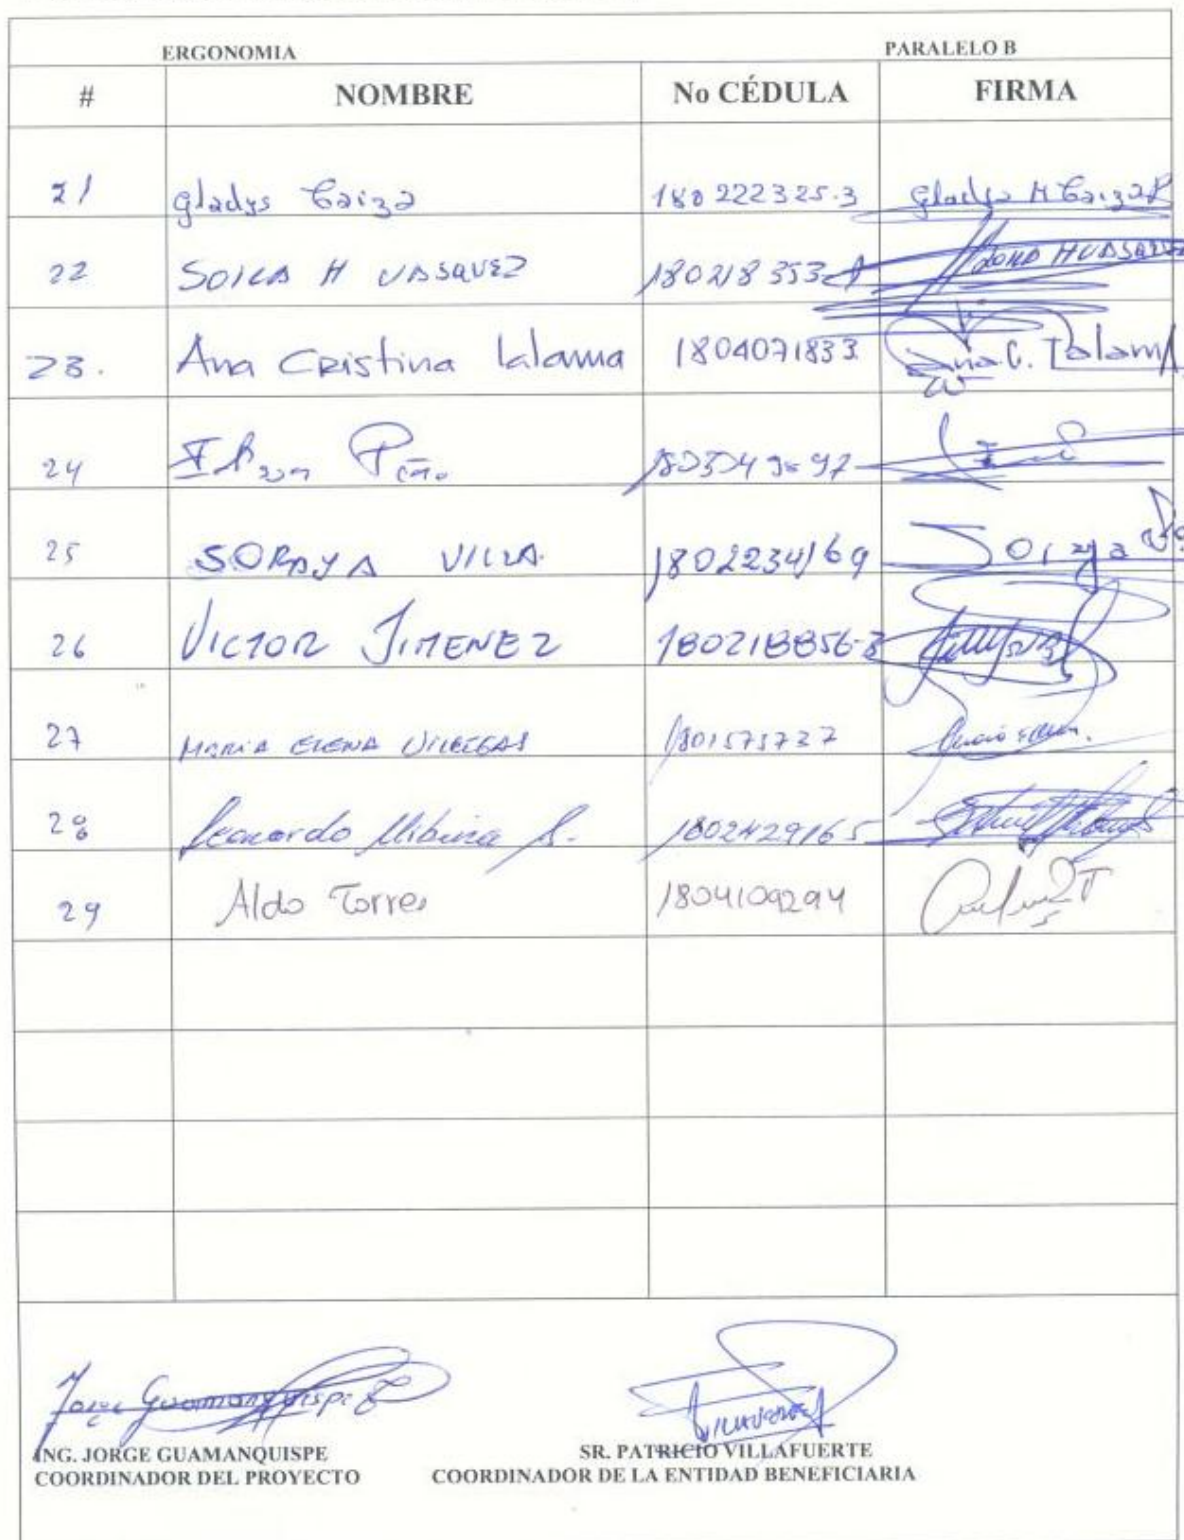 ERGONOMIA PARALELO B
# NOMBRE No CÉDULA FIRMA
21 Gladys Caiza 180222325-3 Gladys M Caiza P
22 SOILA H VASQUEZ 180218353-1 HVASQUEZ
23. Ana Cristina Lalama 1804071833 Ana C. Lalama
24
25 SORAYA VILLA 1802234169 Soraya
26 VICTOR JIMENEZ 180218856-3
27 MARIA ELENA VILLEGAS 1801573737
28 Leonardo 1802429165
29 Aldo Torres 1804109294
Jorge Guamanquispe
ING. JORGE GUAMANQUISPE SR. PATRICIO VILLAFUERTE
COORDINADOR DEL PROYECTO COORDINADOR DE LA ENTIDAD BENEFICIARIA